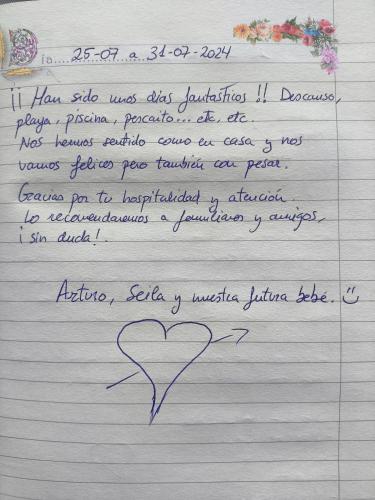 Día 25-07 a 31-07-2024
¡¡ Han sido unos días fantásticos !! Descanso,
playa, piscina, pescaito... etc, etc.
Nos hemos sentido como en casa y nos
vamos felices pero también con pesar.
Gracias por tu hospitalidad y atención.
Lo recomendaremos a familiares y amigos,
¡ sin duda!.
Arturo, Seila y nuestra futura bebé. :)